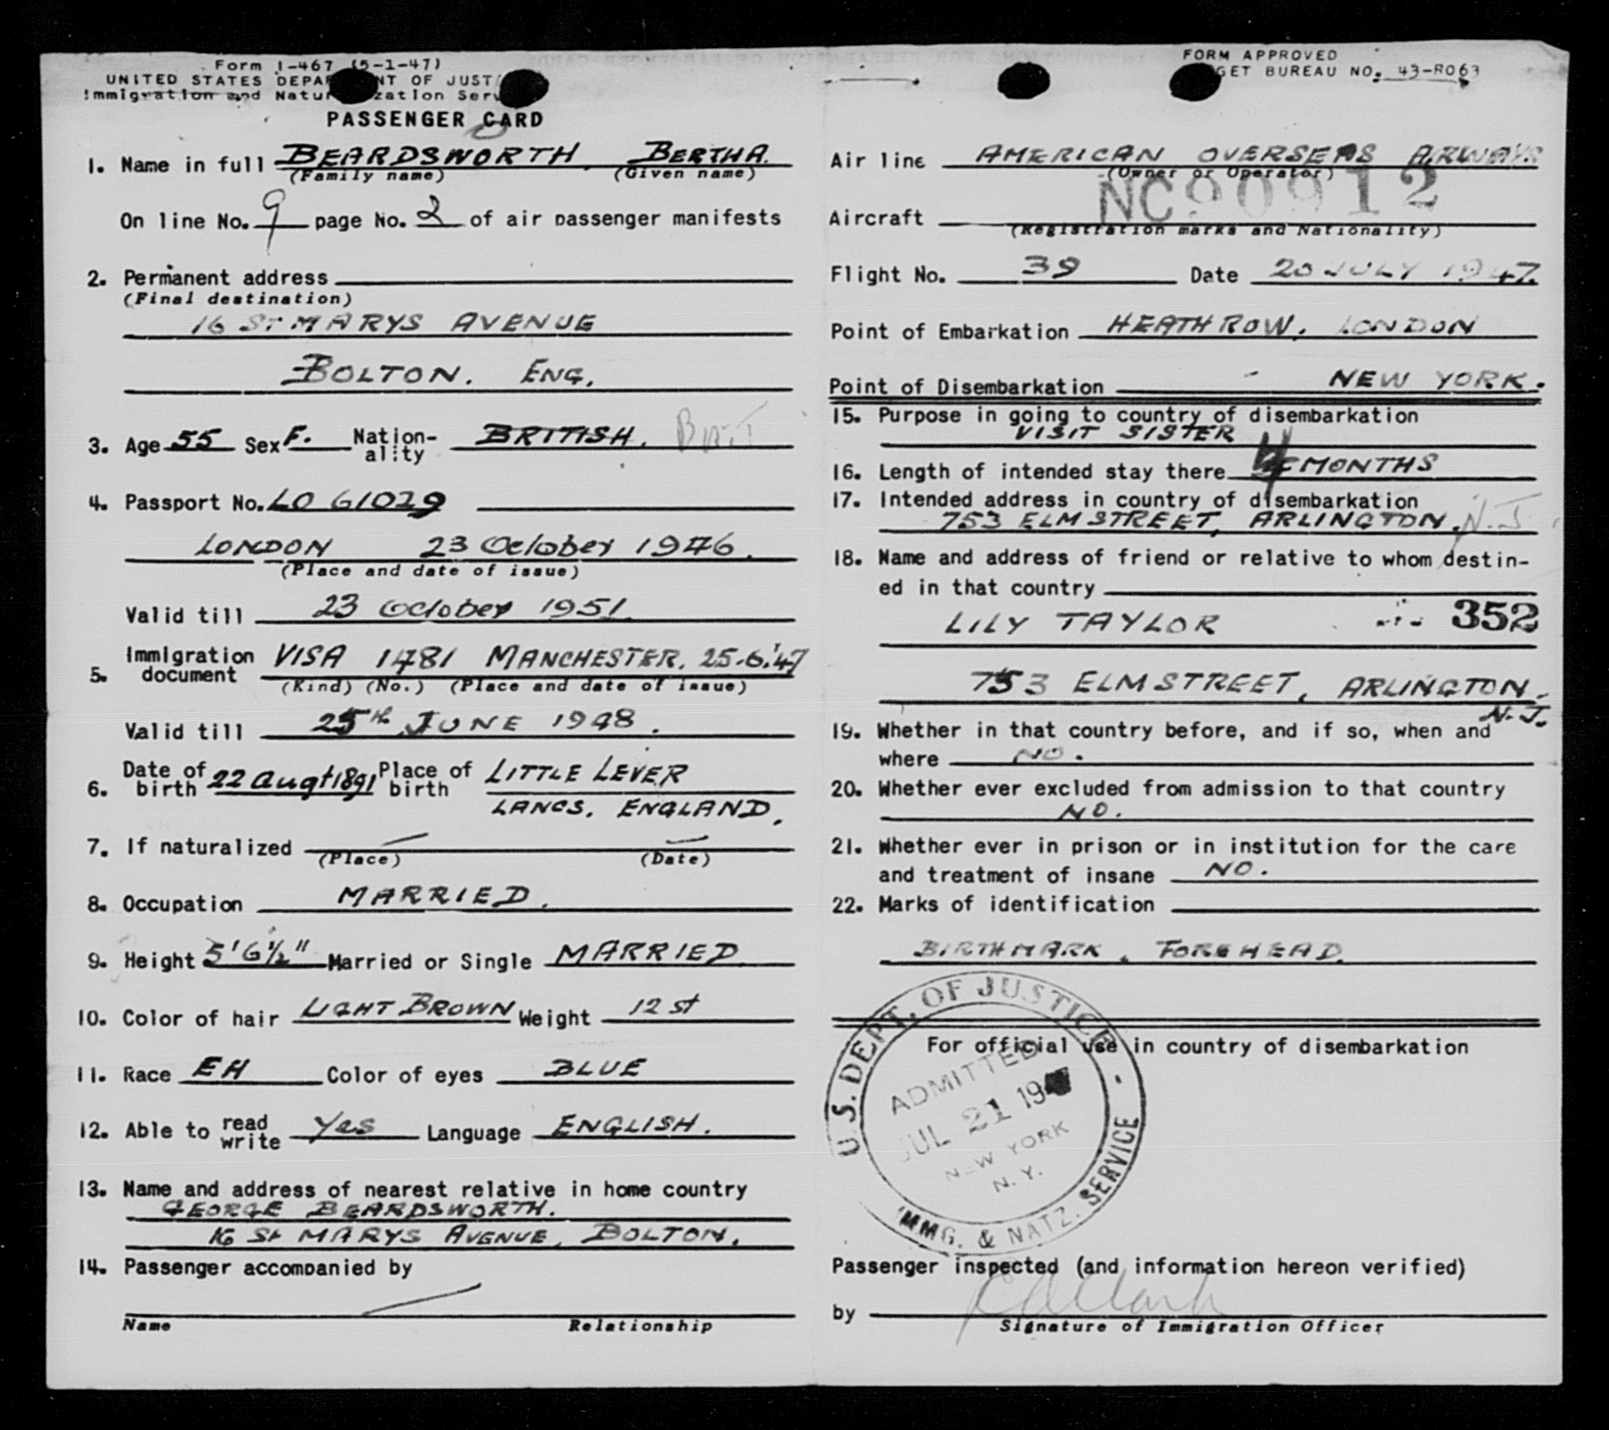 Form I-467 (5-1-47)
UNITED STATES DEPA NT OF JUST
Immigration and Natu zation Serv
PASSENGER CARD
1. Name in full BEARDSWORTH. BERTHA.
(Family name) (Given name)
On line No. 9 page No. 2 of air passenger manifests
2. Permanent address
(Final destination)
16 ST MARYS AVENUE
BOLTON. ENG.
3. Age 55 Sex F. Nation-ality BRITISH. Brit
4. Passport No. LO 61029
LONDON 23 October 1946.
(Place and date of issue)
Valid till 23 October 1951.
5. Immigration document VISA 1481 MANCHESTER. 25.6.'47
(Kind) (No.) (Place and date of issue)
Valid till 25th JUNE 1948.
6. Date of birth 22 Augt 1891 Place of birth LITTLE LEVER
LANCS. ENGLAND.
7. If naturalized —
(Place) (Date)
8. Occupation MARRIED.
9. Height 5' 6½" Married or Single MARRIED
10. Color of hair LIGHT BROWN Weight 12 st
11. Race EH Color of eyes BLUE
12. Able to read write Yes Language ENGLISH.
13. Name and address of nearest relative in home country
GEORGE BEARDSWORTH.
16 St MARYS AVENUE, BOLTON.
14. Passenger accompanied by
Name Relationship
FORM APPROVED
GET BUREAU NO. 43-R063
Air line AMERICAN OVERSEAS AIRWAYS
(Owner or Operator)
Aircraft NC90912
(Registration marks and Nationality)
Flight No. 39 Date 20 JULY 1947.
Point of Embarkation HEATHROW. LONDON
Point of Disembarkation NEW YORK.
15. Purpose in going to country of disembarkation
VISIT SISTER
16. Length of intended stay there 4 MONTHS
17. Intended address in country of disembarkation
753 ELM STREET, ARLINGTON. N.J.
18. Name and address of friend or relative to whom destin-
ed in that country
LILY TAYLOR 352
753 ELM STREET, ARLINGTON.
N.J.
19. Whether in that country before, and if so, when and
where NO.
20. Whether ever excluded from admission to that country
NO.
21. Whether ever in prison or in institution for the care
and treatment of insane NO.
22. Marks of identification
BIRTHMARK. FOREHEAD.
For official use in country of disembarkation
U.S. DEPT. OF JUSTICE - IMMG. & NATZ. SERVICE -
ADMITTED
JUL 21 19
NEW YORK
N. Y.
Passenger inspected (and information hereon verified)
by
Signature of Immigration Officer